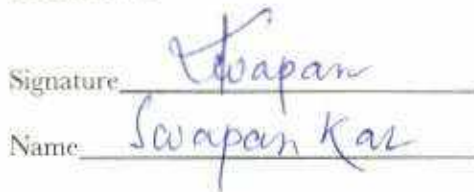 Signature Swapan
Name Swapan Kar